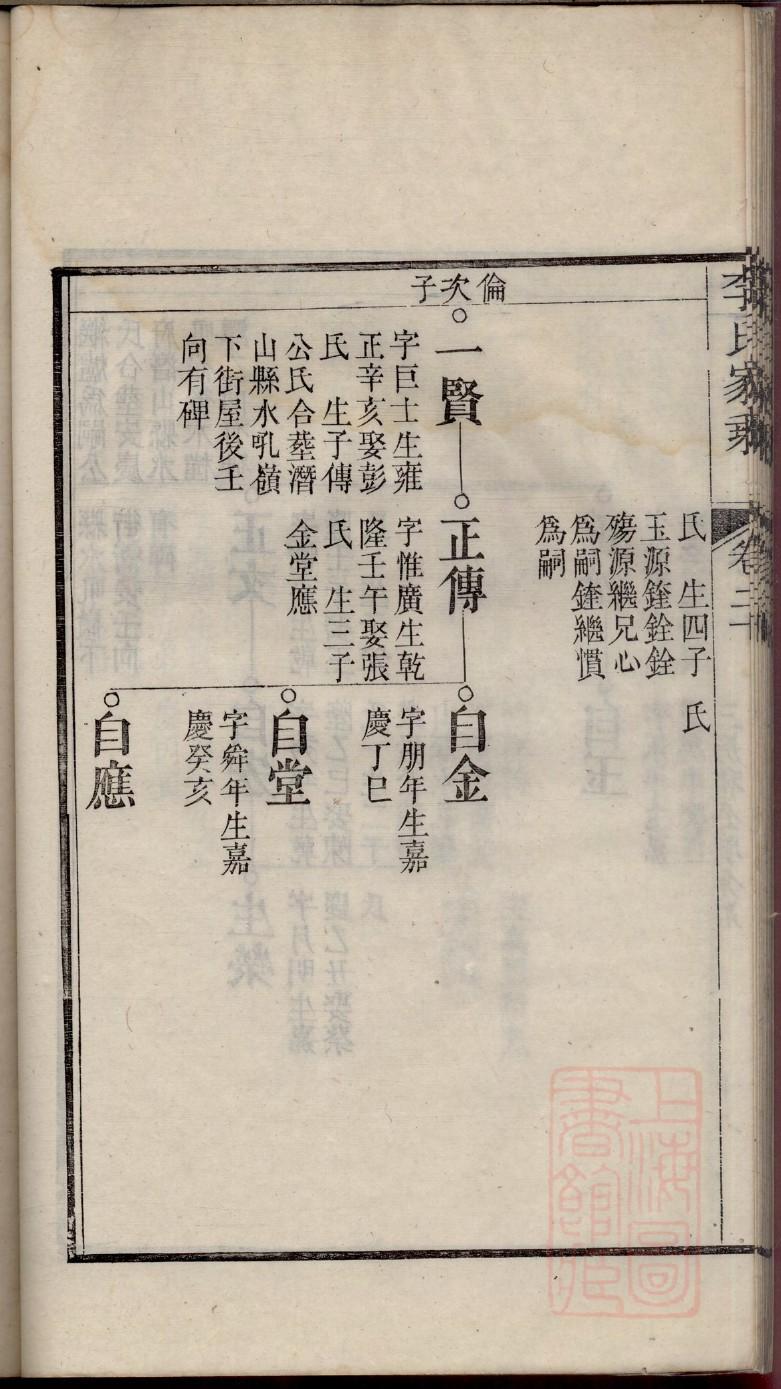 李氏家乘
卷二
氏　生四子
玉源鏠銓銓
殤源繼兄心
為嗣鏠繼慣
為嗣
氏
倫次子
一賢
字巨士生雍
正辛亥娶彭
氏　生子傳
公氏合塟潛
山縣水吼嶺
下街屋後壬
向有碑
正傳
字惟廣生乾
隆壬午娶張
氏　生三子
金堂應
自金
字朋年生嘉
慶丁巳
自堂
字舜年生嘉
慶癸亥
自應
上海圖
書館藏